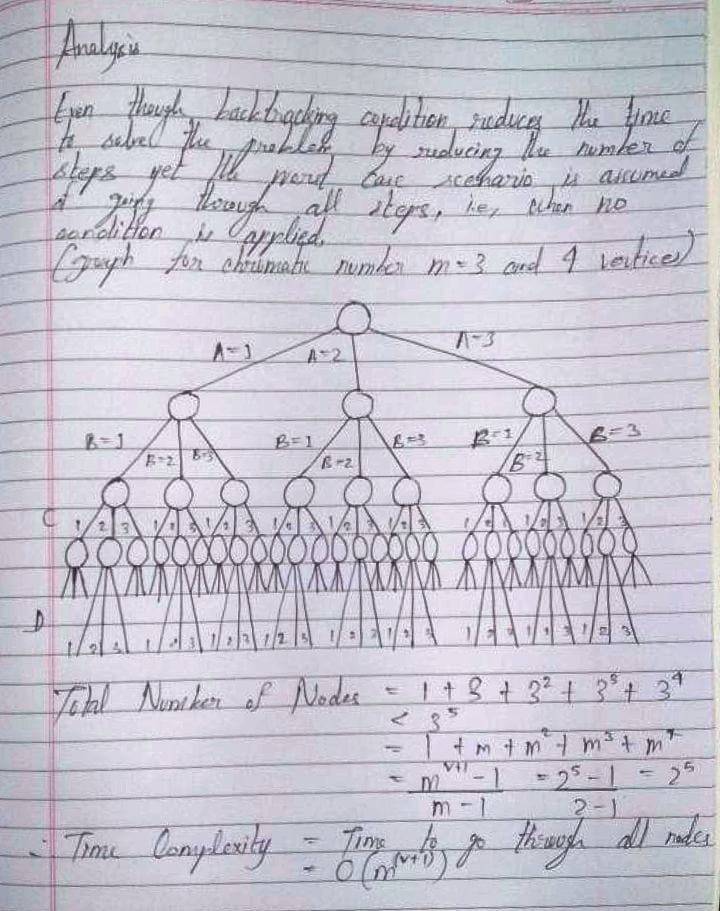 Analysis
Even though backtracking condition reduces the time
to solve the problem by reducing the number of
steps yet the worst case scenario is assumed
of going through all steps, i.e, when no
condition is applied.
(graph for chromatic number m=3 and 4 vertices)
A=1 A=2 A=3
B=1 B=2 B=3 B=1 B=2 B=3 B=1 B=2 B=3
C 1 2 3 1 2 3 1 2 3 1 2 3 1 2 3 1 2 3 1 2 3 1 2 3 1 2 3
D 1 2 3 1 2 3 1 2 3 1 2 3 1 2 3 1 2 3 1 2 3 1 2 3 1 2 3
Total Number of Nodes = 1 + 3 + 3² + 3³ + 3⁴
< 3⁵
= 1 + m + m² + m³ + m⁴
= m^(v+1) - 1 / m - 1 = 2⁵ - 1 / 2 - 1 = 2⁵
∴ Time Complexity = Time to go through all nodes
= O(m^(v+1))